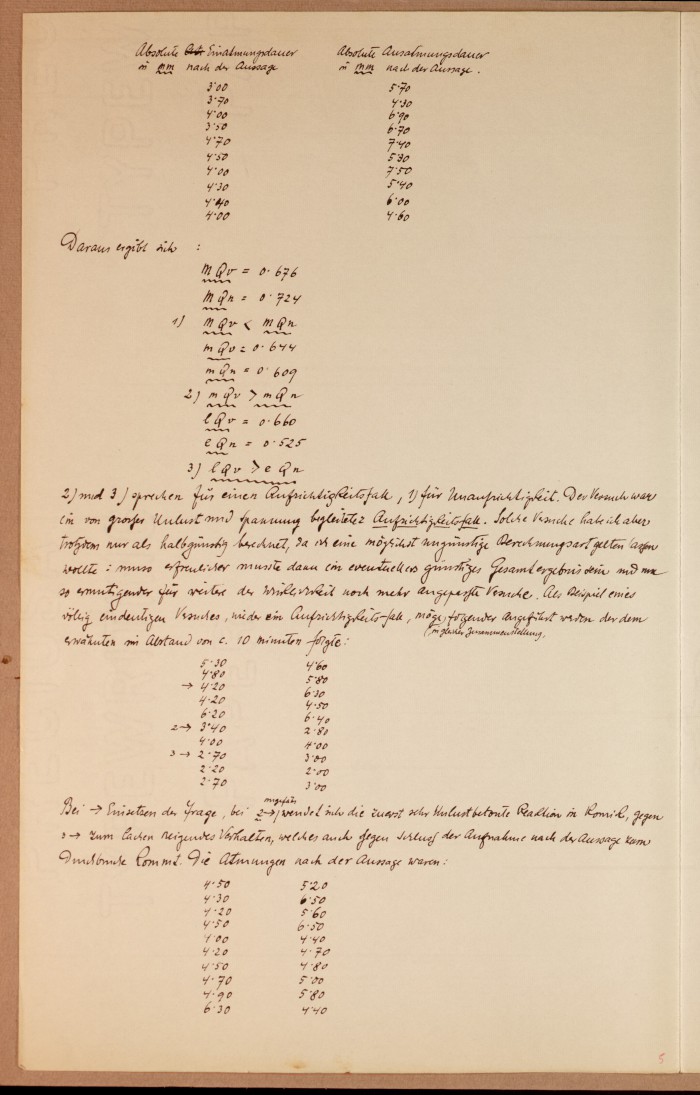 Absolute Einatmungsdauer Absolute Ausatmungsdauer
in mm nach der Aussage in mm nach der Aussage.
3·00 5·70
3·70 4·30
4·00 6·90
3·50 6·70
4·70 7·40
4·50 5·30
4·00 7·50
4·30 5·40
4·40 6·00
4·00 4·60
Daraus ergibt sich :
MQv = 0·676
MQn = 0·724
1) MQv < MQn
mQv = 0·644
mQn = 0·609
2) mQv > mQn
lQv = 0·660
lQn = 0·525
3) lQv > lQn
2) und 3) sprechen für einen Aufrichtigkeitsfall, 1) für Unaufrichtigkeit. Der Versuch war
ein von großer Unlust und Spannung begleiteter Aufrichtigkeitsfall. Solche Versuche habe ich aber
trotzdem nur als halbgünstig berechnet, da ich eine möglichst ungünstige Berechnungsart gelten lassen
wollte: umso erfreulicher musste dann ein eventuelles günstiges Gesamtergebnis sein und um
so ermutigender für weitere der Wirklichkeit noch mehr angepasste Versuche. Als Beispiel eines
völlig eindeutigen Versuches, wieder ein Aufrichtigkeits-fall, möge folgender angeführt werden der dem
in gleicher Zusammenstellung,
erwähnten im Abstand von c. 10 minuten folgte:
5·30 4·60
4·80 5·80
→ 4·20 6·30
4·20 4·50
6·20 6·40
2→ 3·40 2·80
4·00 4·00
3→ 2·70 3·00
2·20 2·00
2·70 3·00
Bei → Einsetzen der Frage, bei 2→ ungefähr wendet sich die zuerst sehr Unlustbetonte Reaktion in Komik, gegen
3→ zum Lachen neigendes Verhalten, welches auch gegen Schluß der Aufnahme nach der Aussage zum
Durchbruche kommt. Die Atmungen nach der Aussage waren:
4·50 5·20
4·30 6·50
4·20 5·60
4·50 6·50
4·00 4·40
4·20 4·70
4·50 4·80
4·70 5·00
4·90 5·80
6·30 4·40
5